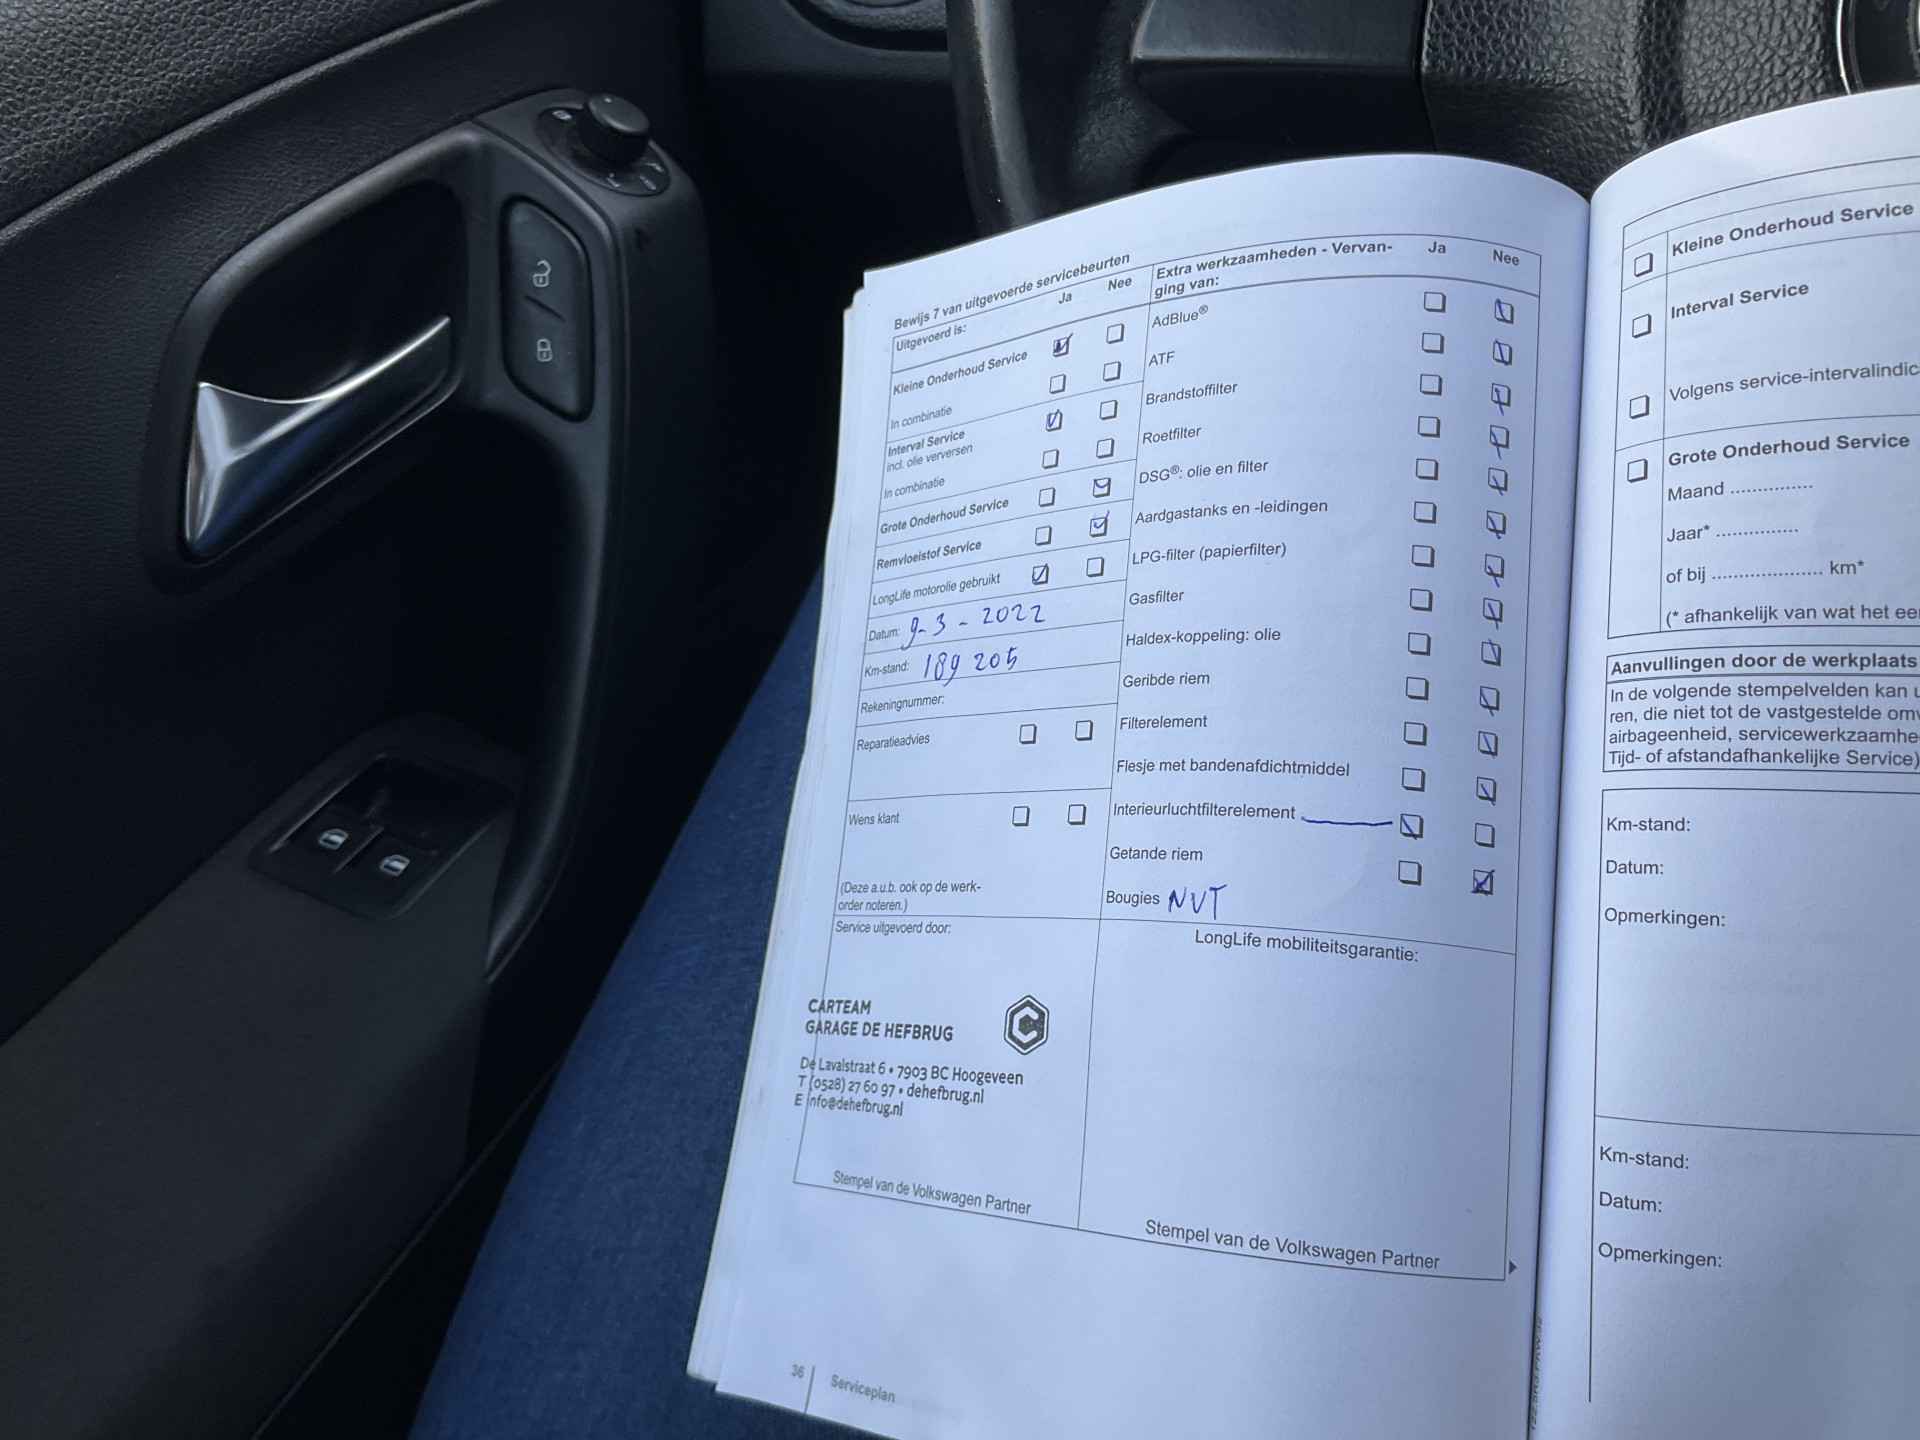 Bewijs 7 van uitgevoerde servicebeurten
Uitgevoerd is:
Ja Nee
Kleine Onderhoud Service
In combinatie
Interval Service
incl. olie verversen
In combinatie
Grote Onderhoud Service
Remvloeistof Service
LongLife motorolie gebruikt
Datum: 9-3-2022
Km-stand: 189 205
Rekeningnummer:
Reparatieadvies
Wens klant
(Deze a.u.b. ook op de werk-
order noteren.)
Extra werkzaamheden - Vervan-
ging van:
Ja Nee
AdBlue®
ATF
Brandstoffilter
Roetfilter
DSG®: olie en filter
Aardgastanks en -leidingen
LPG-filter (papierfilter)
Gasfilter
Haldex-koppeling: olie
Geribde riem
Filterelement
Flesje met bandenafdichtmiddel
Interieurluchtfilterelement
Getande riem
Bougies NVT
Service uitgevoerd door:
CARTEAM
GARAGE DE HEFBRUG
De Lavalstraat 6 • 7903 BC Hoogeveen
T (0528) 27 60 97 • dehefbrug.nl
E info@dehefbrug.nl
Stempel van de Volkswagen Partner
LongLife mobiliteitsgarantie:
Stempel van de Volkswagen Partner
36
Serviceplan
Kleine Onderhoud Service
Interval Service
Volgens service-intervalindic
Grote Onderhoud Service
Maand ..............
Jaar* ..............
of bij .................... km*
(* afhankelijk van wat het eer
Aanvullingen door de werkplaats
In de volgende stempelvelden kan u
ren, die niet tot de vastgestelde omv
airbageenheid, servicewerkzaamhe
Tijd- of afstandafhankelijke Service)
Km-stand:
Datum:
Opmerkingen:
Km-stand:
Datum:
Opmerkingen: